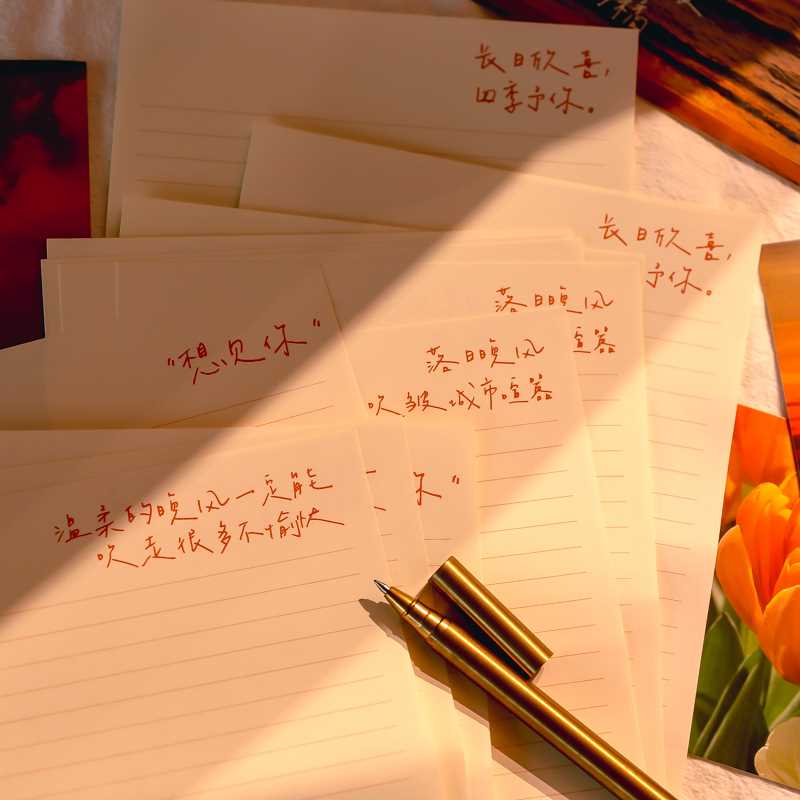 长日欣喜，
四季予你。
长日欣喜，
予你。
落日晚风
喧嚣
"想见你"
落日晚风
吹皱城市喧嚣
你"
温柔的晚风一定能
吹走很多不愉快